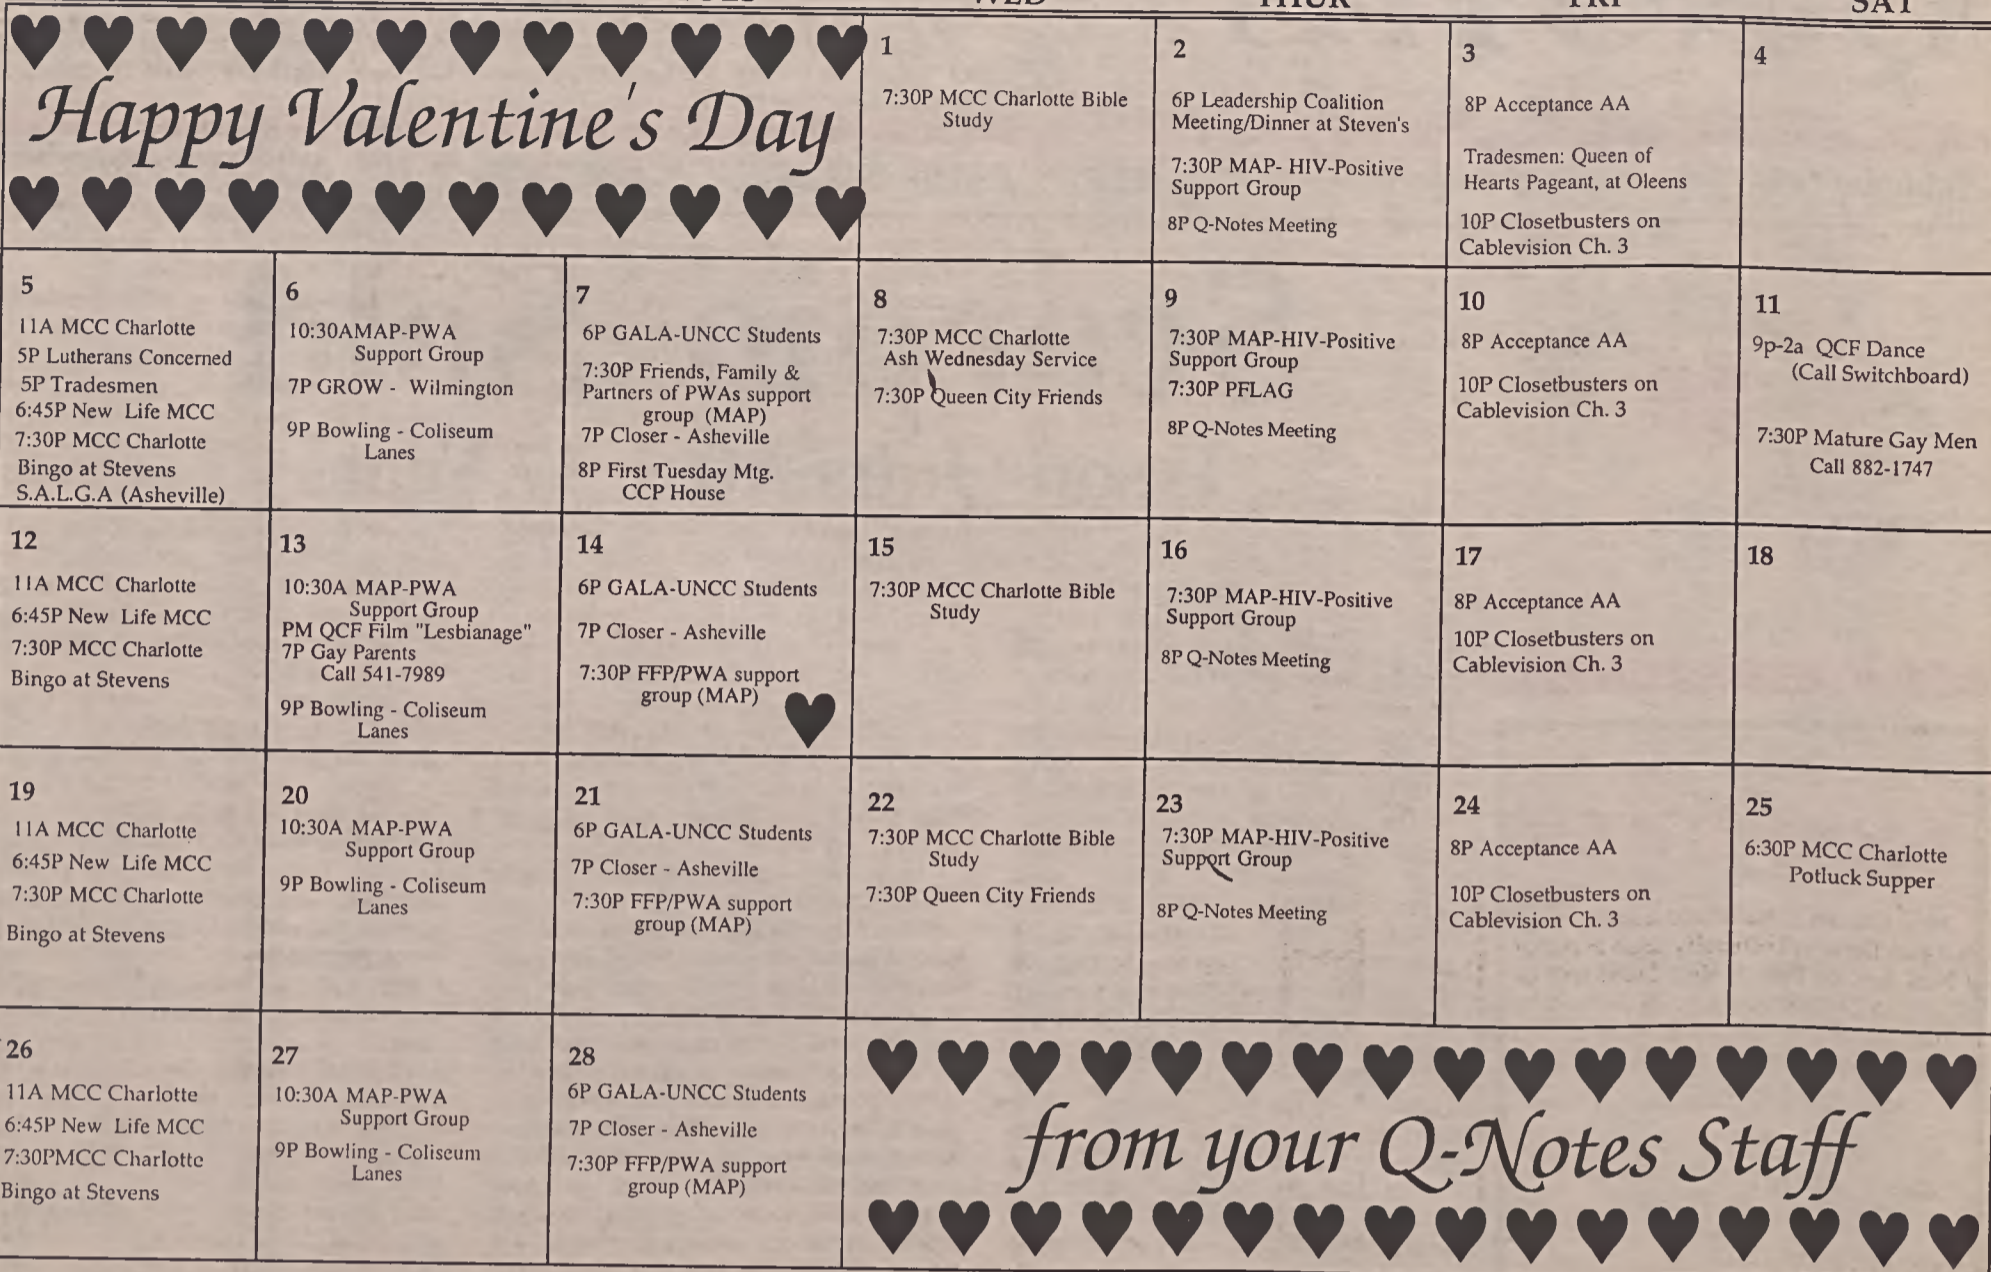 WED
THUR
FRI
SAT
Happy Valentine's Day
1
7:30P MCC Charlotte Bible
Study
2
6P Leadership Coalition
Meeting/Dinner at Steven's
7:30P MAP- HIV-Positive
Support Group
8P Q-Notes Meeting
3
8P Acceptance AA
Tradesmen: Queen of
Hearts Pageant, at Oleens
10P Closetbusters on
Cablevision Ch. 3
4
5
11A MCC Charlotte
5P Lutherans Concerned
5P Tradesmen
6:45P New Life MCC
7:30P MCC Charlotte
Bingo at Stevens
S.A.L.G.A (Asheville)
6
10:30AMAP-PWA
Support Group
7P GROW - Wilmington
9P Bowling - Coliseum
Lanes
7
6P GALA-UNCC Students
7:30P Friends, Family &
Partners of PWAs support
group (MAP)
7P Closer - Asheville
8P First Tuesday Mtg.
CCP House
8
7:30P MCC Charlotte
Ash Wednesday Service
7:30P Queen City Friends
9
7:30P MAP-HIV-Positive
Support Group
7:30P PFLAG
8P Q-Notes Meeting
10
8P Acceptance AA
10P Closetbusters on
Cablevision Ch. 3
11
9p-2a QCF Dance
(Call Switchboard)
7:30P Mature Gay Men
Call 882-1747
12
11A MCC Charlotte
6:45P New Life MCC
7:30P MCC Charlotte
Bingo at Stevens
13
10:30A MAP-PWA
Support Group
PM QCF Film "Lesbianage"
7P Gay Parents
Call 541-7989
9P Bowling - Coliseum
Lanes
14
6P GALA-UNCC Students
7P Closer - Asheville
7:30P FFP/PWA support
group (MAP)
15
7:30P MCC Charlotte Bible
Study
16
7:30P MAP-HIV-Positive
Support Group
8P Q-Notes Meeting
17
8P Acceptance AA
10P Closetbusters on
Cablevision Ch. 3
18
19
11A MCC Charlotte
6:45P New Life MCC
7:30P MCC Charlotte
Bingo at Stevens
20
10:30A MAP-PWA
Support Group
9P Bowling - Coliseum
Lanes
21
6P GALA-UNCC Students
7P Closer - Asheville
7:30P FFP/PWA support
group (MAP)
22
7:30P MCC Charlotte Bible
Study
7:30P Queen City Friends
23
7:30P MAP-HIV-Positive
Support Group
8P Q-Notes Meeting
24
8P Acceptance AA
10P Closetbusters on
Cablevision Ch. 3
25
6:30P MCC Charlotte
Potluck Supper
26
11A MCC Charlotte
6:45P New Life MCC
7:30PMCC Charlotte
Bingo at Stevens
27
10:30A MAP-PWA
Support Group
9P Bowling - Coliseum
Lanes
28
6P GALA-UNCC Students
7P Closer - Asheville
7:30P FFP/PWA support
group (MAP)
from your Q-Notes Staff